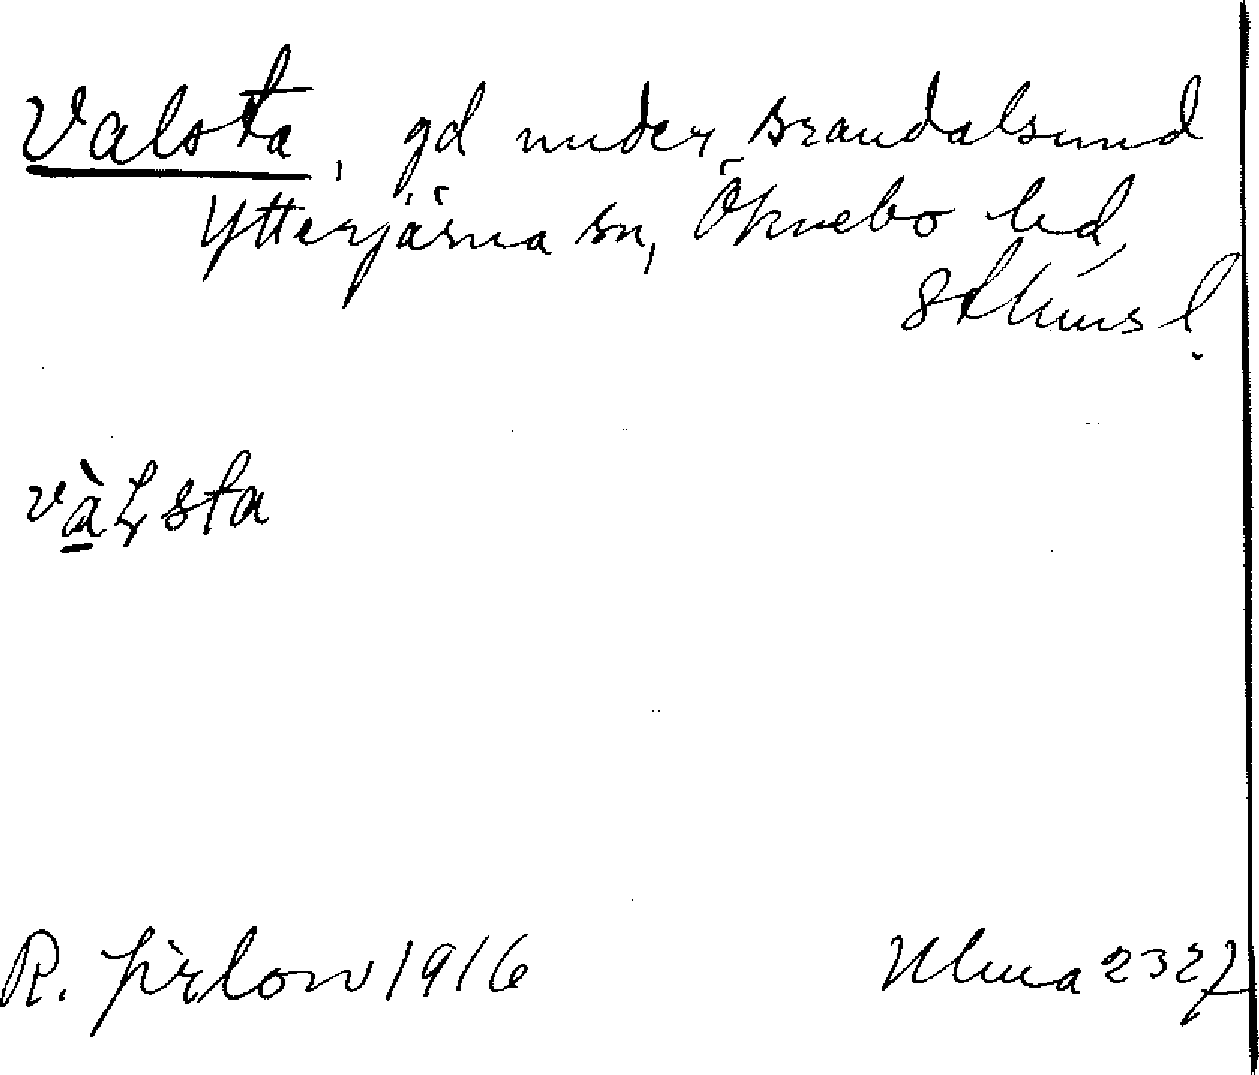 Valsta, gd under Brandalsund
Ytterjärna sn, Öknebo hd,
Sthms l.
vàl̵sta
R. Jirlow 1916
Ulma 2327